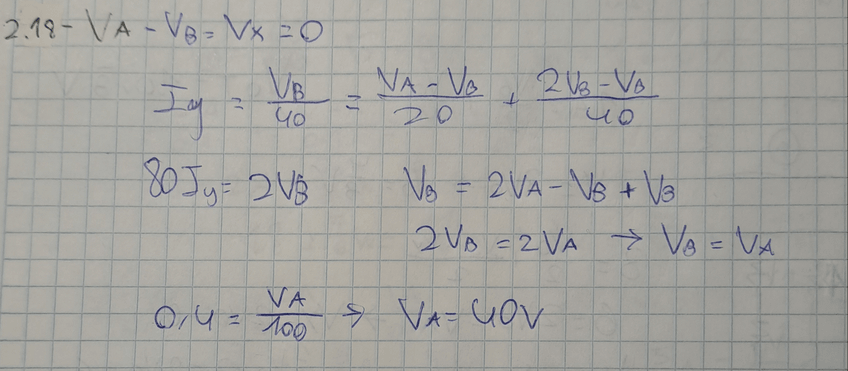 2.18- VA - VB = VX = 0
Iy = VB/40 = VA - VB/20 + 2VB - VB/40
80Iy = 2VB VB = 2VA - VB + VB
2VB = 2VA → VB = VA
0,4 = VA/100 → VA = 40V